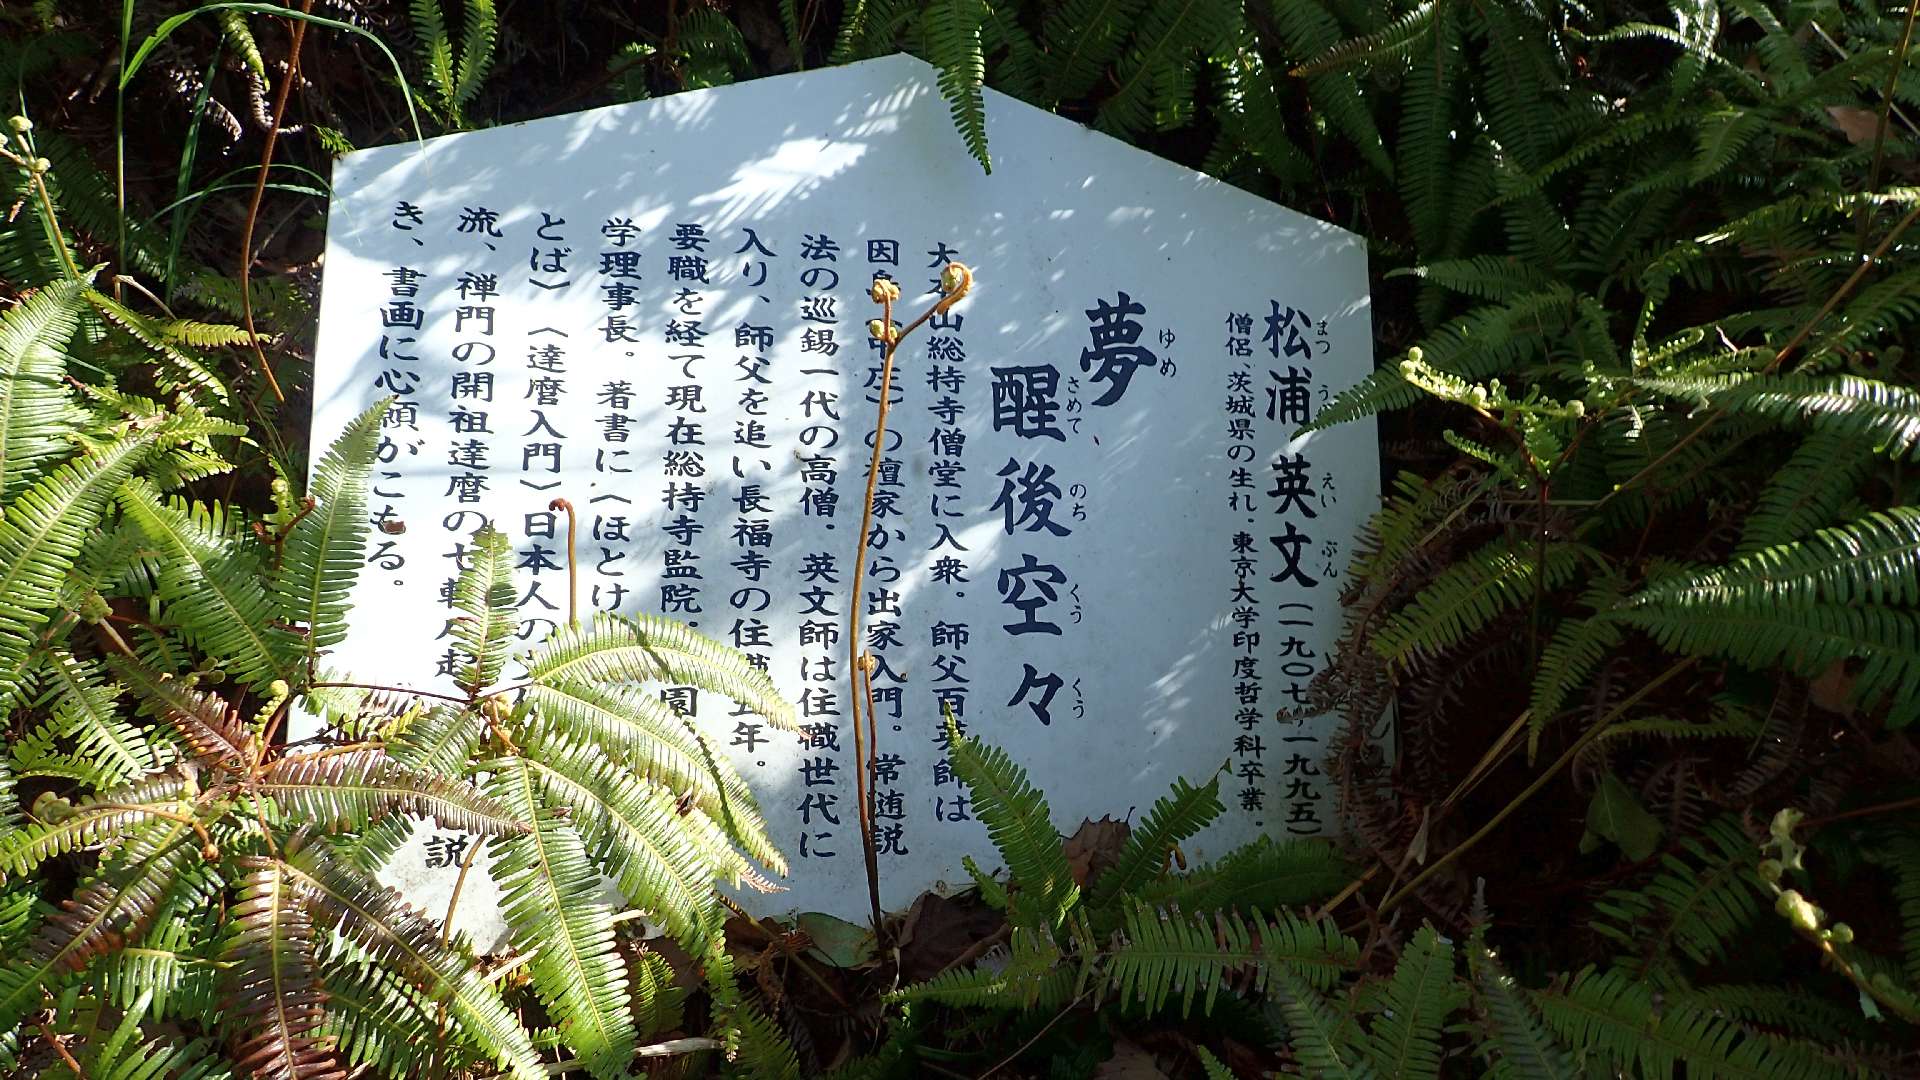 松浦 英文(一九〇七〜一九九五)
まつ えい ぶん
僧侶、茨城県の生れ。東京大学印度哲学科卒業。
夢、
ゆめ
醒後空々
さめて のち くう くう
山総持寺僧堂に入衆。師父百英師は
の檀家から出家入門。常随説
法の巡錫一代の高僧。英文師は住職世代に
入り、師父を追い長福寺の住職 年。
要職を経て現在総持寺監院。 園
学理事長。若書に〈ほとけ
とば〉〈達磨入門〉日本人の
流、禅門の開祖達磨の七転 起
き、書画に心願がこもる。
説